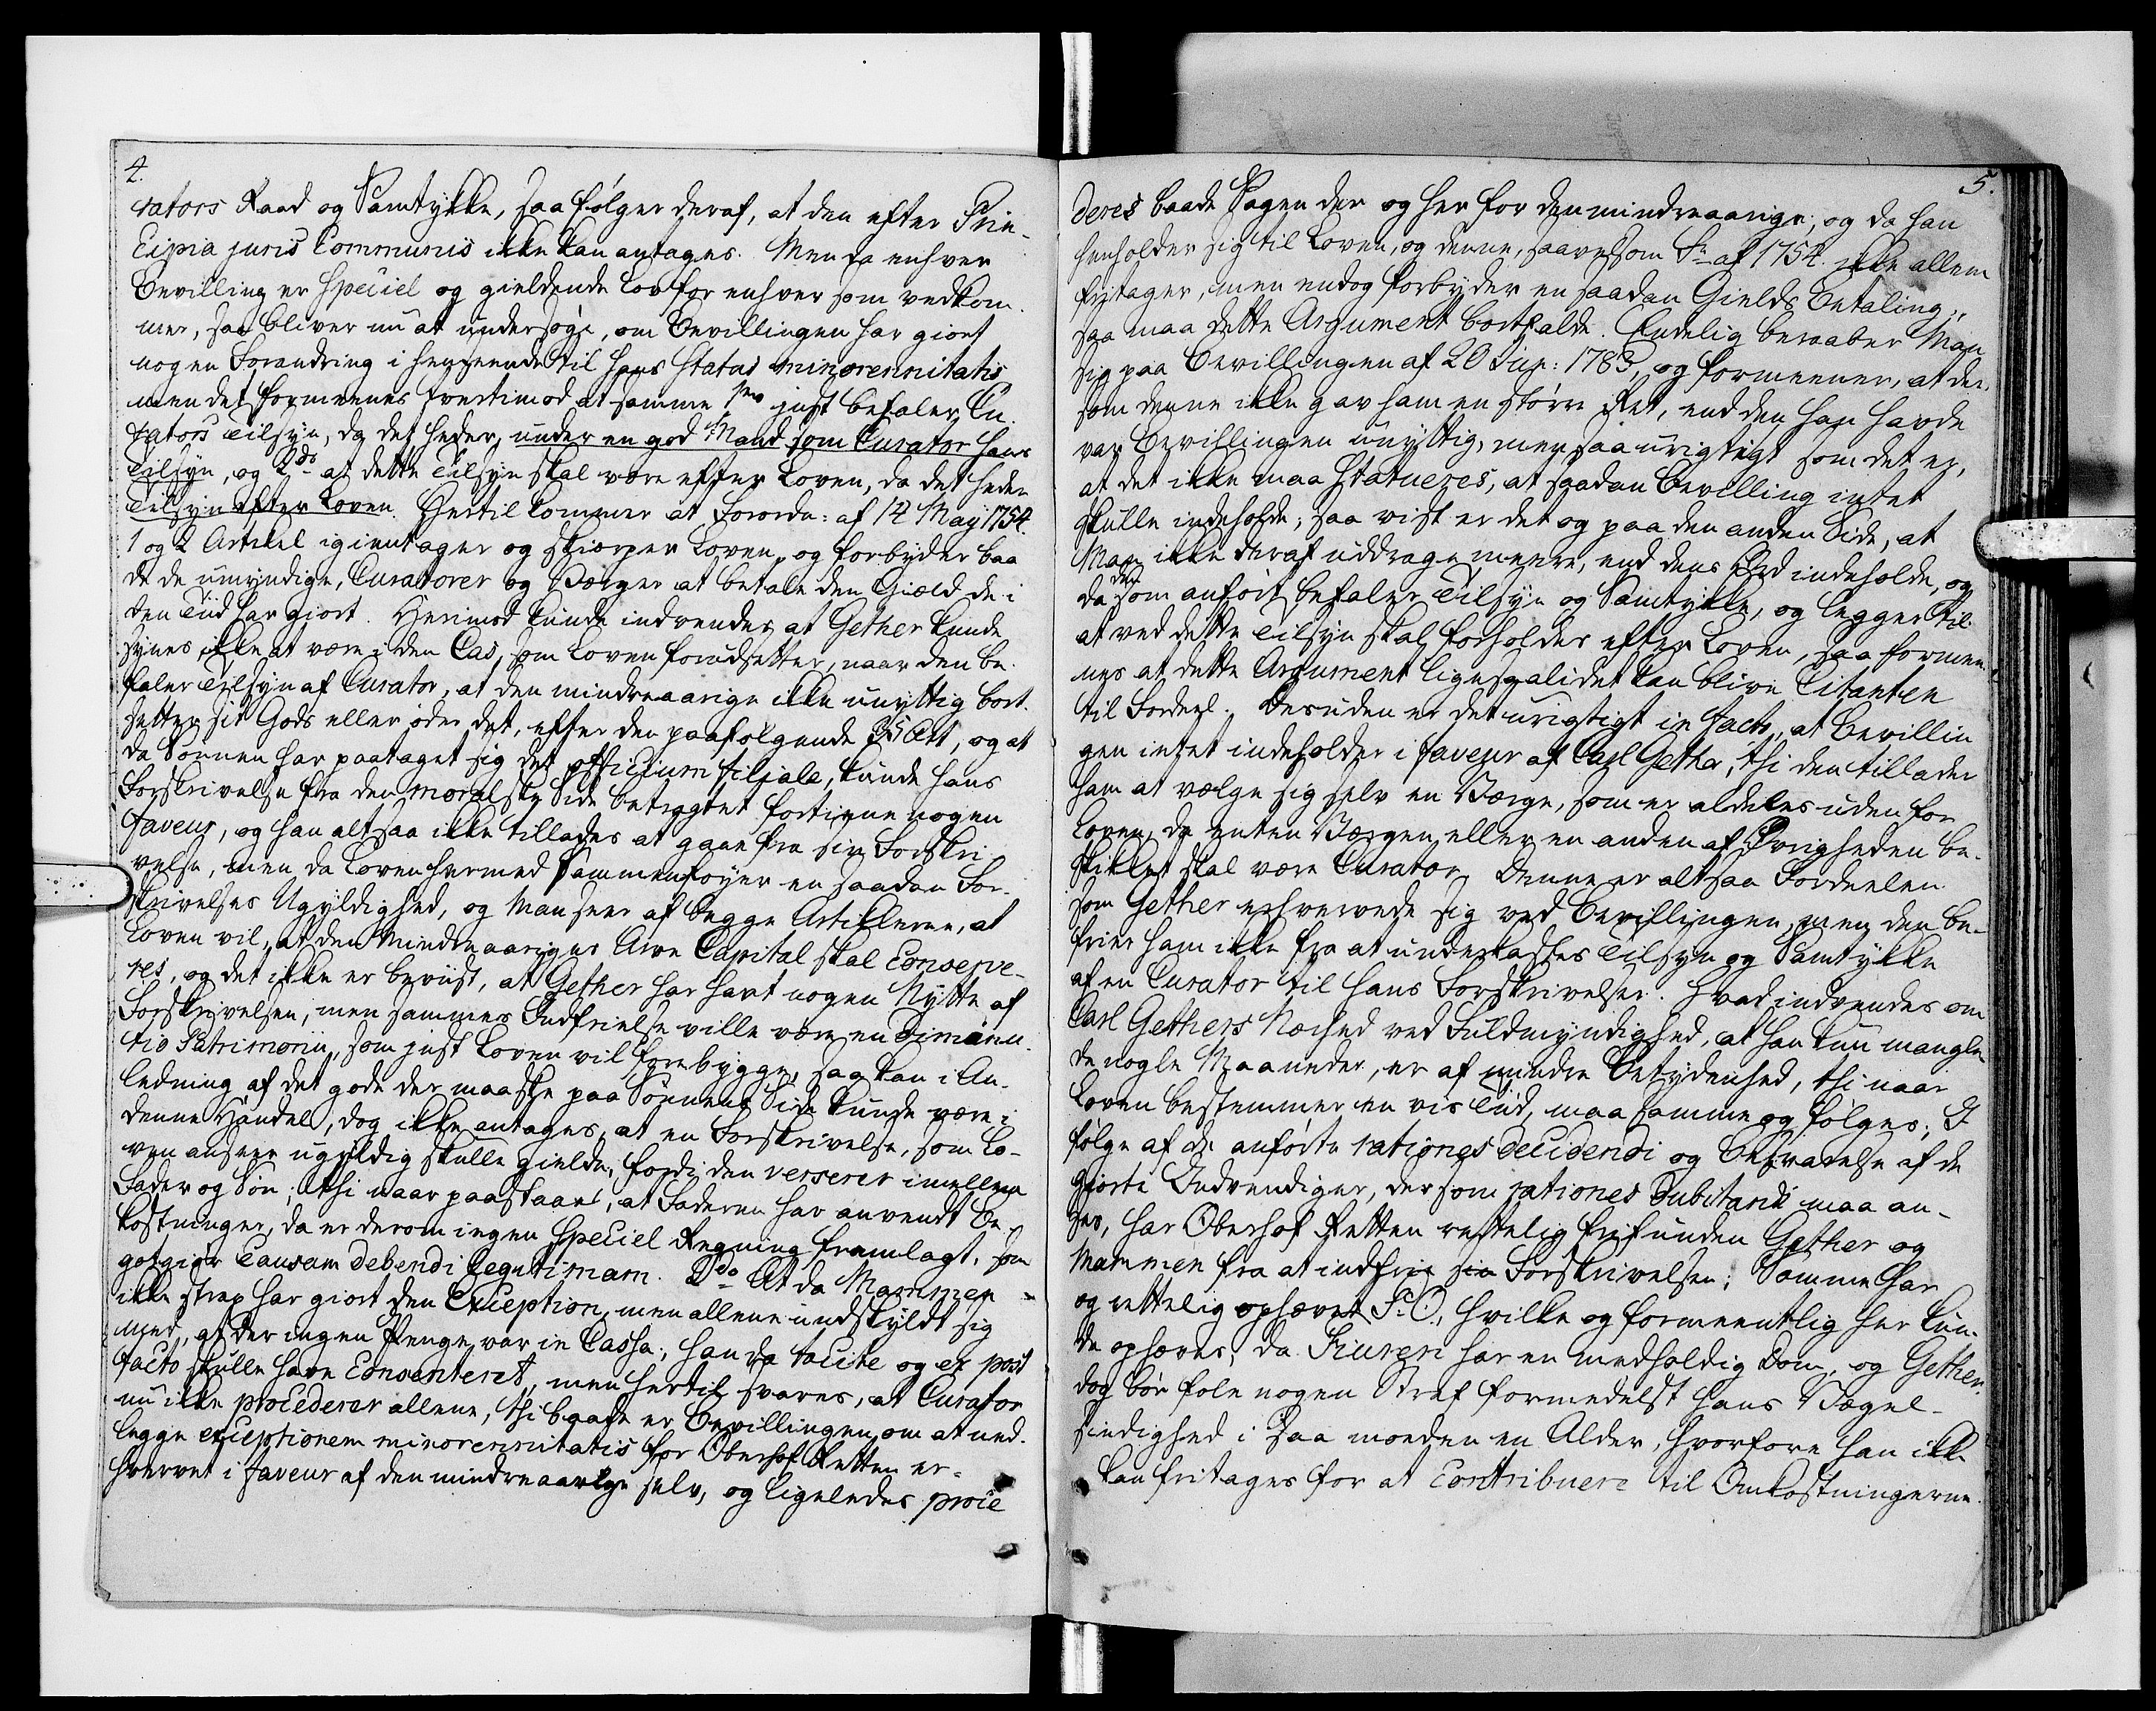 4.
rators Raad og Samtykke, saa følger deraf, at den efter Prin-
cipia juris Communis ikke kan antages. Men da enhver
Bevilling er speciel og gieldende Lov for enhver som vedkom-
mer, saa bliver nu at undersøge, om Bevillingen har giort
nogen Forandring i henseende til hans Status minorennitatis
men det formeenes tvertimod at samme 1mo just befaler Cu-
rators Tilsyn, da det heder, under en god Mand som Curator hans
Tilsyn, og 2do at dette Tilsyn skal være efter Loven, da det heder
Tilsyn efter Loven. Hertil kommer at Forordn: af 14 May 1754.
1 og 2 Artikel igientager og skierper Loven, og forbyder baa
de de umyndige, Curatorer og Værger at betale den Gield de i
den Tiid har giort. Herimod kunde indvendes at Gether kunde
synes ikke at være i den Cas, som Loven forudsetter, naar den be-
faler Tilsyn af Curator, at den mindreaarige ikke unyttig bort-
setter sit Gods eller øder det, efter den paafølgende 35 Art, og at
da Sønnen har paataget sig det officium filiale, kunde hans
Forskrivelse fra den moralske Side betragtet fortiene nogen
faveur, og han altsaa ikke tillades at gaae fra sin Forskri-
velse, men da Loven hermed sammenføyer en saadan For-
skrivelses Ugyldighed, og Man seer af begge Articlerne, at
Loven vil, at den Mindreaariges Arve Capital skal Conserve-
res, og det ikke er beviist, at Gether har havt nogen Nytte af
Forskrivelsen, men sammes Indfrielse ville være en diminu-
tio Patrimonii, som just Loven vil forebygge, saa kan i An-
ledning af det gode der maaske paa Sønnens Side kunde være i
denne Handel, dog ikke antages, at en Forskrivelse, som Lo-
ven ansees ugyldig skulle gielde, fordi den verserer imellem
Fader og Søn; thi naar paastaaes, at Faderen har anvendt Be-
kostninger, da er derom ingen speciel Regning fremlagt, som
gotgiør Causam debendi legitimam. 2do At da Mammen
ikke strax har giort den Exception, men allene undskyldt sig
med, at der ingen Penge var in Cassa, han da tacite og ex post
facto skulle have Consenteret, men hertil svares, at Curator
nu ikke procederer allene, thi baade er Bevillingen om at ned-
legge exceptionem minorennitatis for Oberhof Retten er-
hvervet i faveur af den mindreaarige selv, og ligeledes proce
5.
deres baade Sagen der og her for den mindreaarige, og da han
henholder sig til Loven, og denne, saavelsom Fr: af 1754. ikke allene
fritager, men endog forbyder en saadan Gields Betaling,
saa maa dette Argument bortfalde. Endelig beraaber Man
sig paa Bevillingen af 20 Jun: 1783, og formeener, at der-
som denne ikke gav ham en større Ret, end den han havde
var Bevillingen unyttig, men saa urigtigt som det er,
at det ikke maa statueres, at saadan Bevilling intet
skulle indeholde; saa vist er det og paa den anden Side, at
Man ikke deraf uddrage meere, end dens Ord indeholde, og
da den som anført befaler Tilsyn og Samtykke, og legger til
at ved dette Tilsyn skal forholdes efter Loven, saa formee-
nes at dette Argument ligesaalidet kan blive Citanten
til Fordeel. Desuden er det urigtigt in facto, at Bevillin
gen intet indeholder i faveur af Carl Gether, thi den tillader
ham at vælge sig selv en Værge, som er aldeles uden for
Loven, da enten Værgen eller en anden af Øvrigheden be-
skikket skal være Curator. Denne er altsaa Fordeelen
som Gether erhvervede sig ved Bevillingen, men den be-
frier ham ikke fra at underkastes Tilsyn og Samtykke
af en Curator til hans Forskrivelser. Hvad indvendes om
Carl Gethers Nærhed ved Fuldmyndighed, at han kun mangle
de nogle Maaneder, er af mindre Betydenhed, thi naar
Loven bestemmer en vis Tiid, maa samme og følges; I
følge af de anførte rationes decidendi og Besvarelse af de
giorte Indvendiger, der som rationes dubitandi maa an-
sees, har Oberhof Retten rettelig frifunden Gether og
Mammen fra at indfrie sin Forskrivelsen; Samme har
og rettelig ophævet P: O:, hvilke og formeentlig her kun-
de ophæves, da Fiuren har en medholdig Dom, og Gether
dog bør føle nogen Straf formedelst hans Vægel-
sindighed i saa moeden en Alder, hvorfore han ikke
kan fritages for at Contribuere til Omkostningerne.